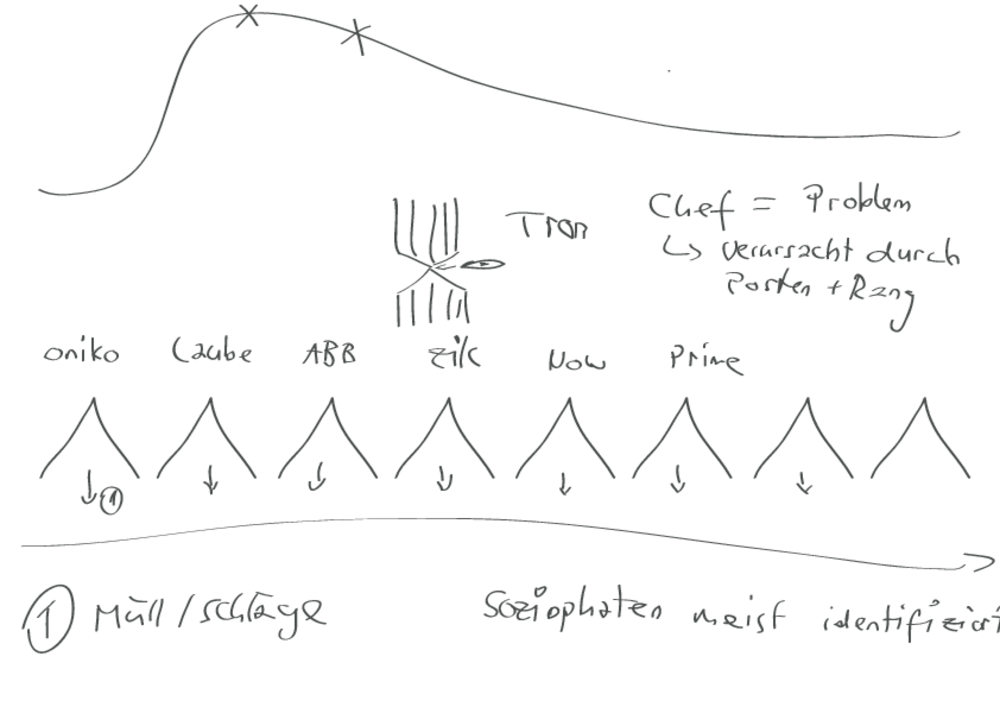 Tron
Chef = Problem
↳ verursacht durch
Posten + Rang
oniko Laube ABB zik Now Prime
①
① Müll / schläge
Soziophaten meist identifiziert